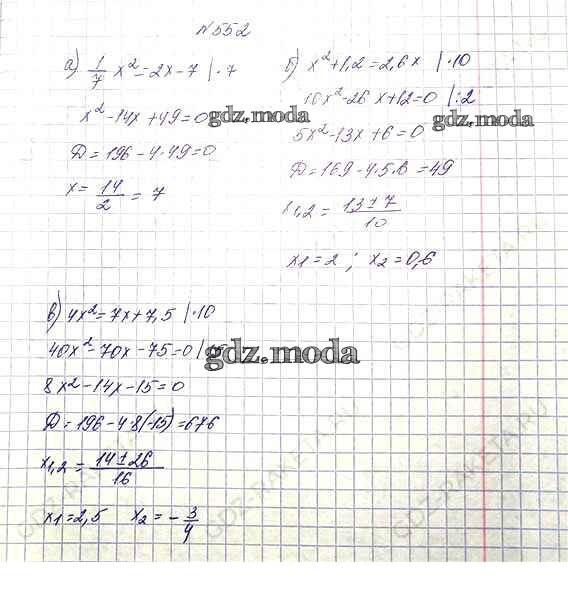 №552
а) 1/7 x² = 2x - 7 | ·7
x² - 14x + 49 = 0
Д = 196 - 4·49 = 0
x = 14/2 = 7
б) x² + 1,2 = 2,6x | ·10
10x² - 26x + 12 = 0 | :2
5x² - 13x + 6 = 0
Д = 169 - 4·5·6 = 49
x1,2 = 13±7/10
x1 = 2 ; x2 = 0,6
в) 4x² = 7x + 7,5 | ·10
40x² - 70x - 75 = 0 |
8x² - 14x - 15 = 0
Д = 196 - 4·8(-15) = 676
x1,2 = 14±26/16
x1 = 2,5 x2 = - 3/4
gdz.moda
gdz.moda
gdz.moda
GDZ-RAKETA.RU
GDZ-RAKETA.RU
GDZ-RAKETA.RU